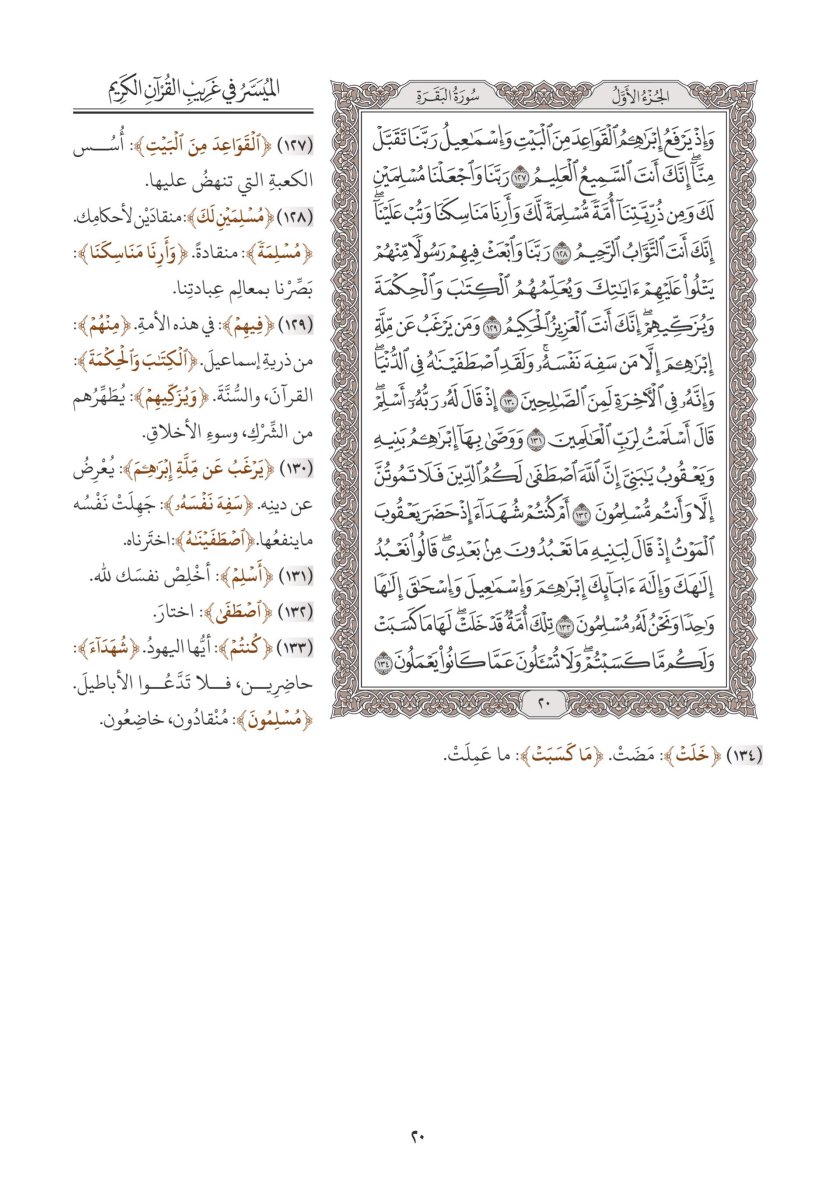 الجُزْءُ الأَوَّلُ
سُورَةُ البَقَرَةِ
وَإِذۡ يَرۡفَعُ إِبۡرَٰهِـۧمُ ٱلۡقَوَاعِدَ مِنَ ٱلۡبَيۡتِ وَإِسۡمَٰعِيلُ رَبَّنَا تَقَبَّلۡ
مِنَّآۖ إِنَّكَ أَنتَ ٱلسَّمِيعُ ٱلۡعَلِيمُ ١٢٧ رَبَّنَا وَٱجۡعَلۡنَا مُسۡلِمَيۡنِ
لَكَ وَمِن ذُرِّيَّتِنَآ أُمَّةٗ مُّسۡلِمَةٗ لَّكَ وَأَرِنَا مَنَاسِكَنَا وَتُبۡ عَلَيۡنَآۖ
إِنَّكَ أَنتَ ٱلتَّوَّابُ ٱلرَّحِيمُ ١٢٨ رَبَّنَا وَٱبۡعَثۡ فِيهِمۡ رَسُولٗا مِّنۡهُمۡ
يَتۡلُواْ عَلَيۡهِمۡ ءَايَٰتِكَ وَيُعَلِّمُهُمُ ٱلۡكِتَٰبَ وَٱلۡحِكۡمَةَ
وَيُزَكِّيهِمۡۖ إِنَّكَ أَنتَ ٱلۡعَزِيزُ ٱلۡحَكِيمُ ١٢٩ وَمَن يَرۡغَبُ عَن مِّلَّةِ
إِبۡرَٰهِـۧمَ إِلَّا مَن سَفِهَ نَفۡسَهُۥۚ وَلَقَدِ ٱصۡطَفَيۡنَٰهُ فِي ٱلدُّنۡيَاۖ
وَإِنَّهُۥ فِي ٱلۡأٓخِرَةِ لَمِنَ ٱلصَّٰلِحِينَ ١٣٠ إِذۡ قَالَ لَهُۥ رَبُّهُۥٓ أَسۡلِمۡۖ
قَالَ أَسۡلَمۡتُ لِرَبِّ ٱلۡعَٰلَمِينَ ١٣١ وَوَصَّىٰ بِهَآ إِبۡرَٰهِـۧمُ بَنِيهِ
وَيَعۡقُوبُ يَٰبَنِيَّ إِنَّ ٱللَّهَ ٱصۡطَفَىٰ لَكُمُ ٱلدِّينَ فَلَا تَمُوتُنَّ
إِلَّا وَأَنتُم مُّسۡلِمُونَ ١٣٢ أَمۡ كُنتُمۡ شُهَدَآءَ إِذۡ حَضَرَ يَعۡقُوبَ
ٱلۡمَوۡتُ إِذۡ قَالَ لِبَنِيهِ مَا تَعۡبُدُونَ مِنۢ بَعۡدِيۖ قَالُواْ نَعۡبُدُ
إِلَٰهَكَ وَإِلَٰهَ ءَابَآئِكَ إِبۡرَٰهِـۧمَ وَإِسۡمَٰعِيلَ وَإِسۡحَٰقَ إِلَٰهٗا
وَٰحِدٗا وَنَحۡنُ لَهُۥ مُسۡلِمُونَ ١٣٣ تِلۡكَ أُمَّةٞ قَدۡ خَلَتۡۖ لَهَا مَا كَسَبَتۡ
وَلَكُم مَّا كَسَبۡتُمۡۖ وَلَا تُسۡـَٔلُونَ عَمَّا كَانُواْ يَعۡمَلُونَ ١٣٤
٢٠
المُيَسَّرُ فِي غَرِيبِ القُرْآنِ الكَرِيمِ
(١٢٧) ﴿ٱلۡقَوَاعِدَ مِنَ ٱلۡبَيۡتِ﴾: أُسُس
الكعبةِ التي تنهضُ عليها.
(١٢٨) ﴿مُسۡلِمَيۡنِ لَكَ﴾: منقادَيْن لأحكامِك.
﴿مُسۡلِمَةٗ﴾: منقادةً. ﴿وَأَرِنَا مَنَاسِكَنَا﴾:
بَصِّرْنا بمعالِم عِبادتِنا.
(١٢٩) ﴿فِيهِمۡ﴾: في هذه الأمةِ. ﴿مِنۡهُمۡ﴾:
من ذريةِ إسماعيلَ. ﴿ٱلۡكِتَٰبَ وَٱلۡحِكۡمَةَ﴾:
القرآنَ، والسُّنَّةَ. ﴿وَيُزَكِّيهِمۡ﴾: يُطَهِّرُهم
من الشِّرْكِ، وسوءِ الأخلاقِ.
(١٣٠) ﴿يَرۡغَبُ عَن مِّلَّةِ إِبۡرَٰهِـۧمَ﴾: يُعْرِضُ
عن دينِه. ﴿سَفِهَ نَفۡسَهُۥ﴾: جَهِلَتْ نَفْسُه
ماينفعُها. ﴿ٱصۡطَفَيۡنَٰهُ﴾: اختَرناه.
(١٣١) ﴿أَسۡلِمۡ﴾: أخْلِصْ نفسَك لله.
(١٣٢) ﴿ٱصۡطَفَىٰ﴾: اختارَ.
(١٣٣) ﴿كُنتُمۡ﴾: أيُّها اليهودُ. ﴿شُهَدَآءَ﴾:
حاضِرِين، فلا تَدَّعُوا الأباطيلَ.
﴿مُسۡلِمُونَ﴾: مُنْقادُون، خاضِعُون.
(١٣٤) ﴿خَلَتۡ﴾: مَضَتْ. ﴿مَا كَسَبَتۡ﴾: ما عَمِلَتْ.
٢٠